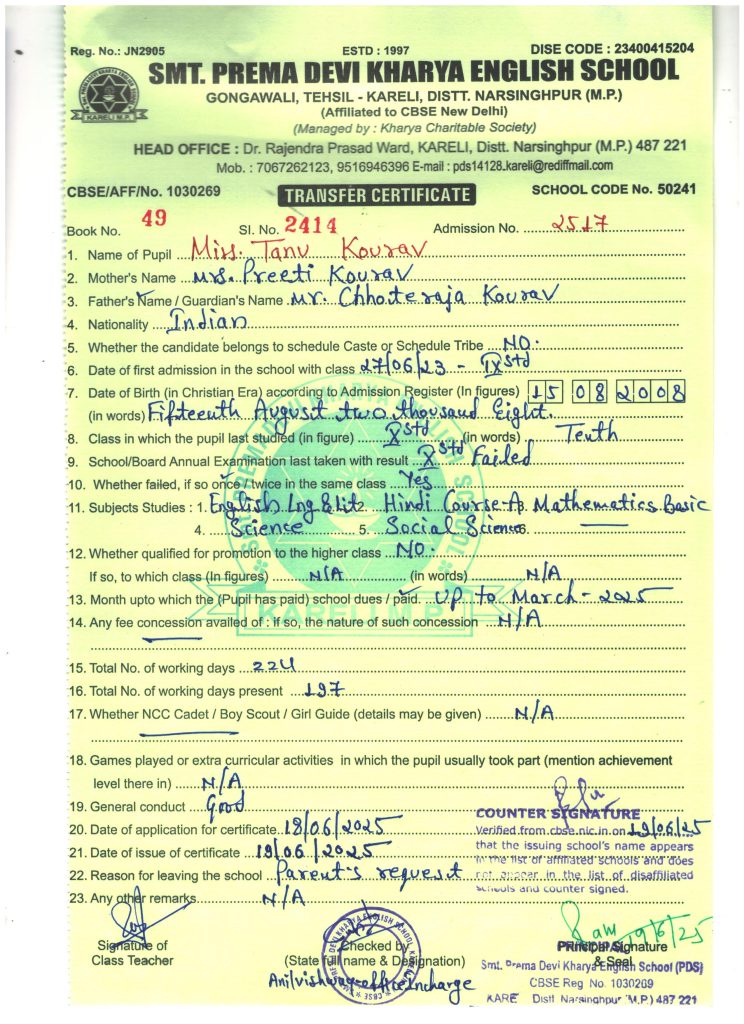 Reg. No.: JN2905 ESTD : 1997 DISE CODE : 23400415204
SMT. PREMA DEVI KHARYA ENGLISH SCHOOL
GONGAWALI, TEHSIL - KARELI, DISTT. NARSINGHPUR (M.P.)
(Affiliated to CBSE New Delhi)
(Managed by : Kharya Charitable Society)
KARELI M.P.
HEAD OFFICE : Dr. Rajendra Prasad Ward, KARELI, Distt. Narsinghpur (M.P.) 487 221
Mob. : 7067262123, 9516946396 E-mail : pds14128.kareli@rediffmail.com
CBSE/AFF/No. 1030269 TRANSFER CERTIFICATE SCHOOL CODE No. 50241
Book No. 49 Sl. No. 2414 Admission No. 2517
1. Name of Pupil Miss. Tanu Kourav
2. Mother's Name Mrs. Preeti Kourav
3. Father's Name / Guardian's Name Mr. Chhoteraja Kourav
4. Nationality Indian
5. Whether the candidate belongs to schedule Caste or Schedule Tribe NO.
6. Date of first admission in the school with class 27/06/23 - IXstd
7. Date of Birth (in Christian Era) according to Admission Register (In figures) 15 08 2008
(in words) Fifteenth August two thousand Eight.
8. Class in which the pupil last studied (in figure) Xstd (in words) Tenth
9. School/Board Annual Examination last taken with result Xstd Failed
10. Whether failed, if so once / twice in the same class Yes
11. Subjects Studies : 1. English Lng & lit 2. Hindi Course-A 3. Mathematics Basic
4. Science 5. Social Science 6.
12. Whether qualified for promotion to the higher class NO.
If so, to which class (In figures) N/A (in words) N/A
13. Month upto which the (Pupil has paid) school dues / paid. Up to March - 2025
14. Any fee concession availed of : if so, the nature of such concession N/A
15. Total No. of working days 224
16. Total No. of working days present 197
17. Whether NCC Cadet / Boy Scout / Girl Guide (details may be given) N/A
18. Games played or extra curricular activities in which the pupil usually took part (mention achievement
level there in) N/A
19. General conduct Good
20. Date of application for certificate 18/06/2025
21. Date of issue of certificate 19/06/2025
22. Reason for leaving the school Parent's request
23. Any other remarks N/A
COUNTER SIGNATURE
Verified from cbse.nic.in on 19/06/25
that the issuing school's name appears
in the list of affiliated schools and does
not appear in the list of disaffiliated
schools and counter signed.
Signature of
Class Teacher
Checked by
(State full name & Designation)
Anil vishwa office Incharge
19/6/25
PRINCIPAL
Principal Signature
& Seal
Smt. Prema Devi Kharya English School (PDS)
CBSE Reg No. 1030269
KARE Distt Narsinghpur (M.P.) 487 221